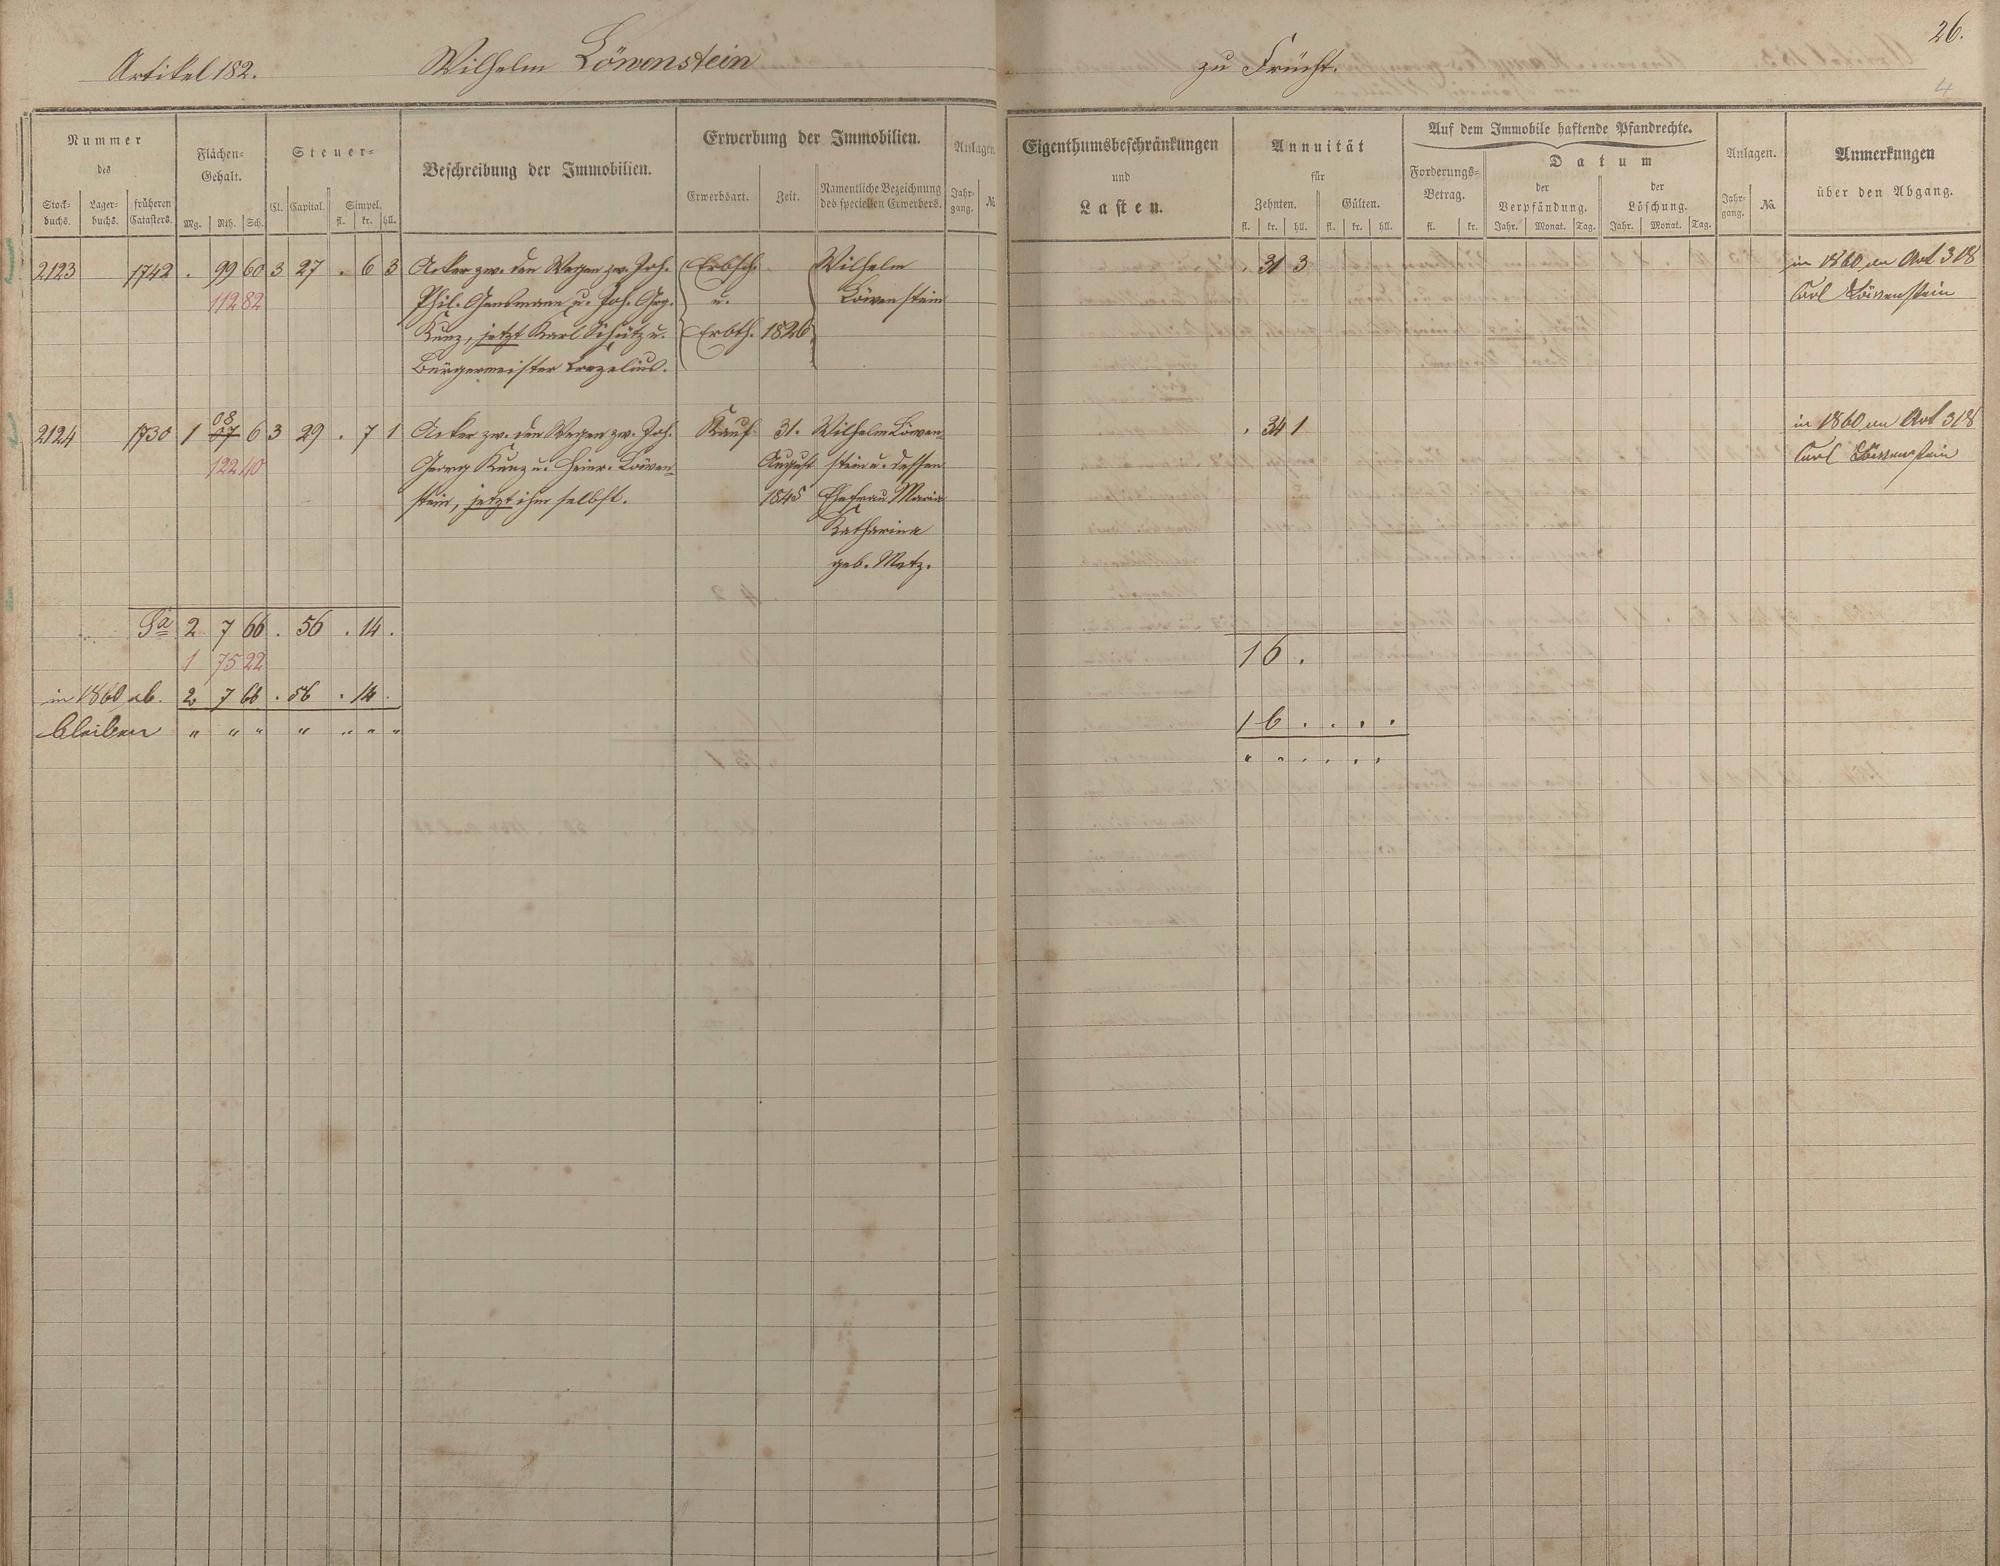 26.
Artikel 182. Wilhelm Löwenstein zu Frücht.
4
Nummer
des
Stock-
buchs.
Lager-
buchs.
früheren
Catasters.
Flächen-
Gehalt.
Mg. Rth. Sch.
Steuer-
Cl. Capital. Simpel.
fl. kr. hll.
Beschreibung der Immobilien.
Erwerbung der Immobilien.
Erwerbsart. Zeit.
Namentliche Bezeichnung
des speciellen Erwerbers.
Anlagen.
Jahr-
gang.
№
Eigenthumsbeschränkungen
und
Lasten.
Annuität
für
Zehnten. Gülten.
fl. kr. hll. fl. kr. hll.
Auf dem Immobile haftende Pfandrechte.
Forderungs-
Betrag.
fl. kr.
Datum
der
Verpfändung.
Jahr. Monat. Tag.
der
Löschung.
Jahr. Monat. Tag.
Anlagen.
Jahr-
gang.
№.
Anmerkungen
über den Abgang.
2123 1742 . 99 60 3 27 . 6 3 Acker zw. den Wegen zw. Joh. Erbsch. Wilhelm . 31 3 in 1860 an Art 318
112 82 Phil. Gensmann u. Joh. Geg. u. Löwenstein Carl Löwenstein
Kunz, jetzt Karl Schütz u. Erbth. 1826
Bürgermeister
08
2124 1730 1 07 6 3 29 . 7 1 Acker zw. den Wegen zw. Joh. Kauf 31. Wilhelm Löwen- . 34 1 in 1860 an Art 318
122 40 Georg Kunz u. Heinr. Löwen- August stein u. dessen Carl Löwenstein
stein, jetzt ihm selbst. 1845 Ehefrau Maria
Katharina
geb. Metz.
Sa 2 7 66 . 56 . 14 . 1 6 .
1 75 22
in 1860 ab. 2 7 66 . 56 . 14 . 1 6 . . . .
bleiben " " " " " " "